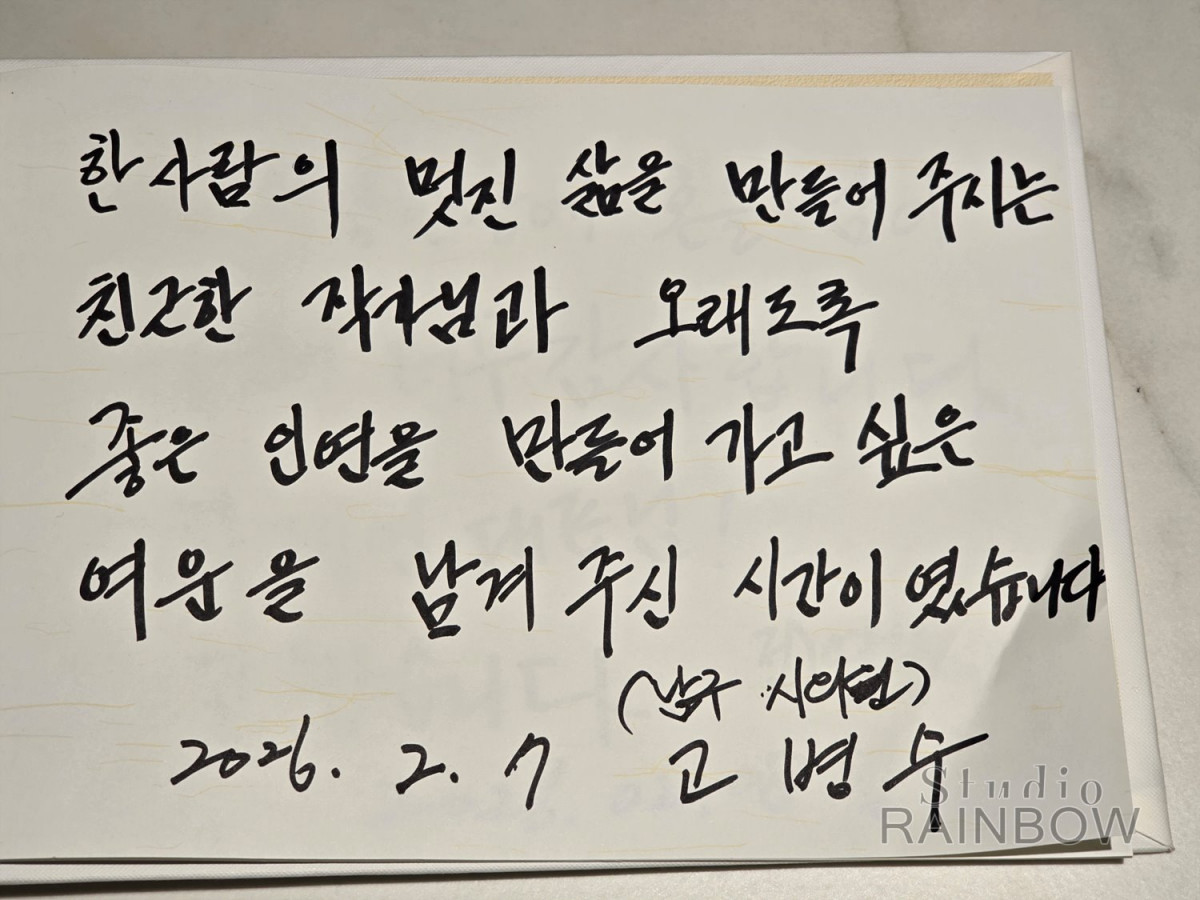 한사람의 멋진 삶을 만들어 주시는
친근한 작가님과 오래도록
좋은 인연을 만들어 가고 싶은
여운을 남겨 주신 시간이 였습니다
(남구
2026. 2. 7 고 병 수
Studio
RAINBOW